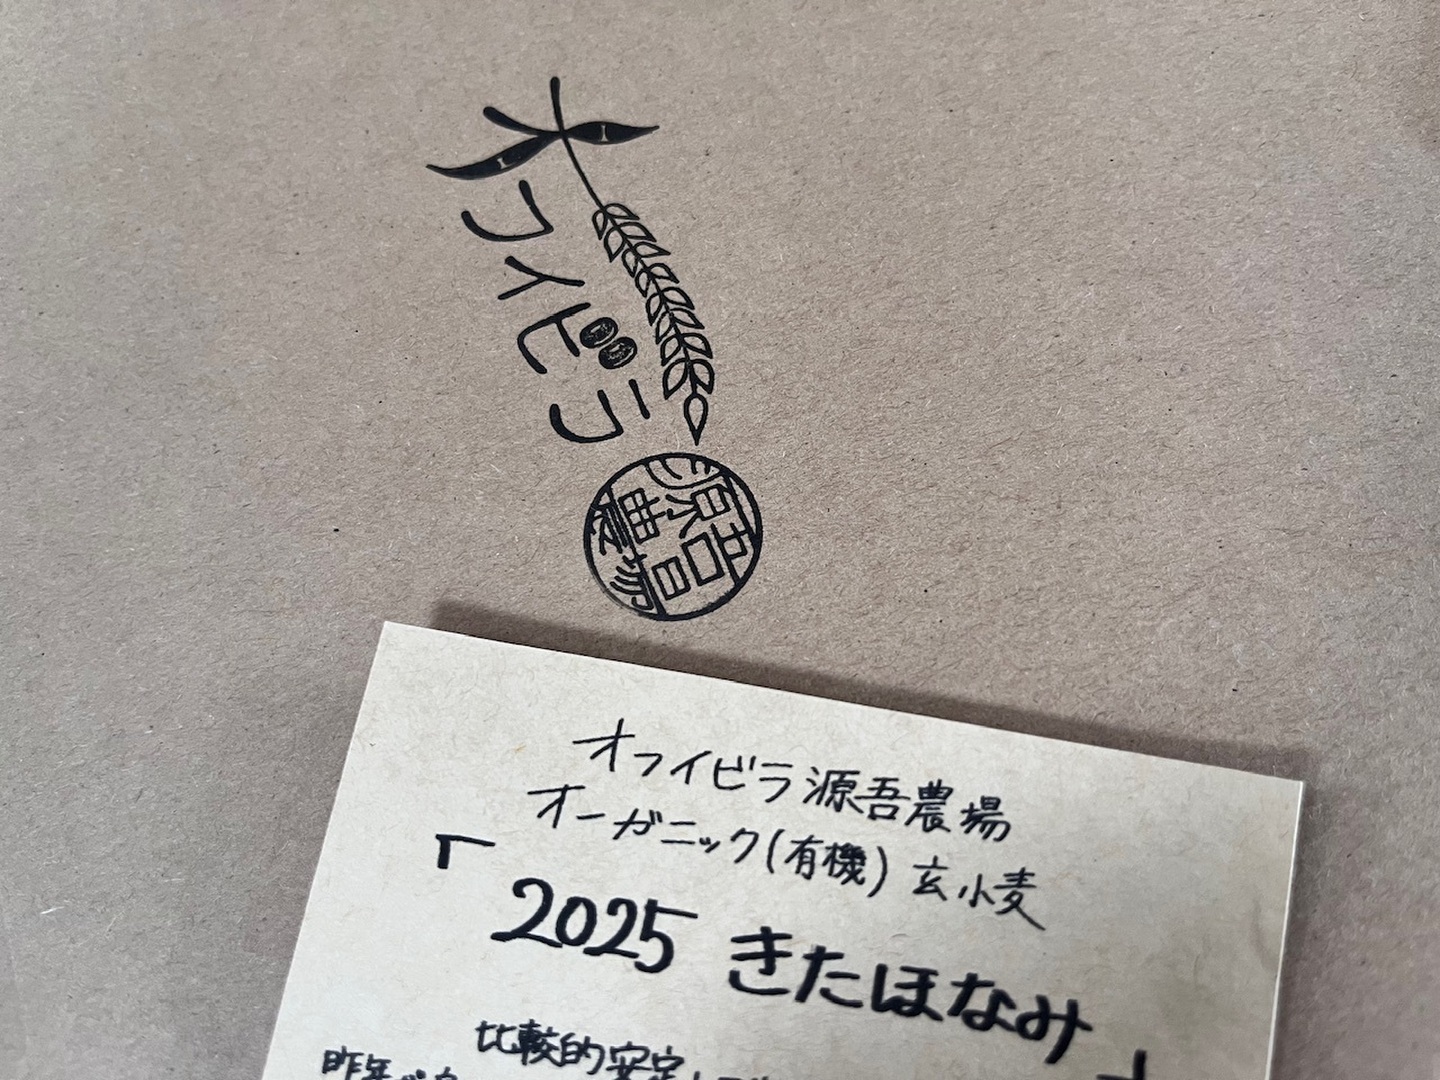 オフイビラ
源吾
農場
オフイビラ源吾農場
オーガニック(有機) 玄小麦
「2025 きたほなみ
比較的安定
昨年